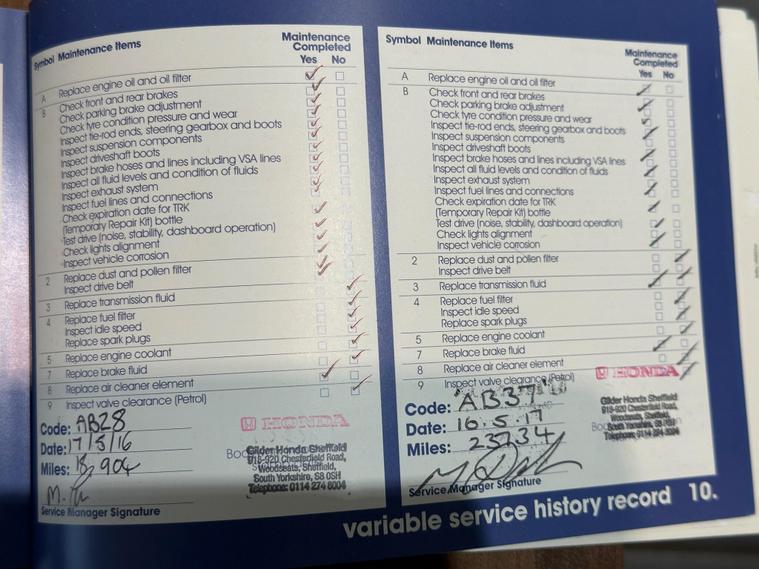 Symbol Maintenance Items
Maintenance Completed
Yes No
A Replace engine oil and oil filter
B Check front and rear brakes
Check parking brake adjustment
Check tyre condition pressure and wear
Inspect tie-rod ends, steering gearbox and boots
Inspect suspension components
Inspect driveshaft boots
Inspect brake hoses and lines including VSA lines
Inspect all fluid levels and condition of fluids
Inspect exhaust system
Inspect fuel lines and connections
Check expiration date for TRK
(Temporary Repair Kit) bottle
Test drive (noise, stability, dashboard operation)
Check lights alignment
Inspect vehicle corrosion
2 Replace dust and pollen filter
Inspect drive belt
3 Replace transmission fluid
4 Replace fuel filter
Inspect idle speed
Replace spark plugs
5 Replace engine coolant
7 Replace brake fluid
8 Replace air cleaner element
9 Inspect valve clearance (Petrol)
Code: AB28
Date: 17/5/16
Miles: 18,904
HONDA
Gilder Honda Sheffield
918-920 Chesterfield Road,
Woodseats, Sheffield,
South Yorkshire, S8 0SH
Telephone: 0114 274 8004
Service Manager Signature
Symbol Maintenance Items
Maintenance Completed
Yes No
A Replace engine oil and oil filter
B Check front and rear brakes
Check parking brake adjustment
Check tyre condition pressure and wear
Inspect tie-rod ends, steering gearbox and boots
Inspect suspension components
Inspect driveshaft boots
Inspect brake hoses and lines including VSA lines
Inspect all fluid levels and condition of fluids
Inspect exhaust system
Inspect fuel lines and connections
Check expiration date for TRK
(Temporary Repair Kit) bottle
Test drive (noise, stability, dashboard operation)
Check lights alignment
Inspect vehicle corrosion
2 Replace dust and pollen filter
Inspect drive belt
3 Replace transmission fluid
4 Replace fuel filter
Inspect idle speed
Replace spark plugs
5 Replace engine coolant
7 Replace brake fluid
8 Replace air cleaner element
9 Inspect valve clearance (Petrol)
HONDA
Code: "AB37"
Date: 16.5.17
Miles: 23734
Gilder Honda Sheffield
918-920 Chesterfield Road,
Woodseats, Sheffield,
South Yorkshire,
Telephone: 0114
Service Manager Signature
variable service history record 10.